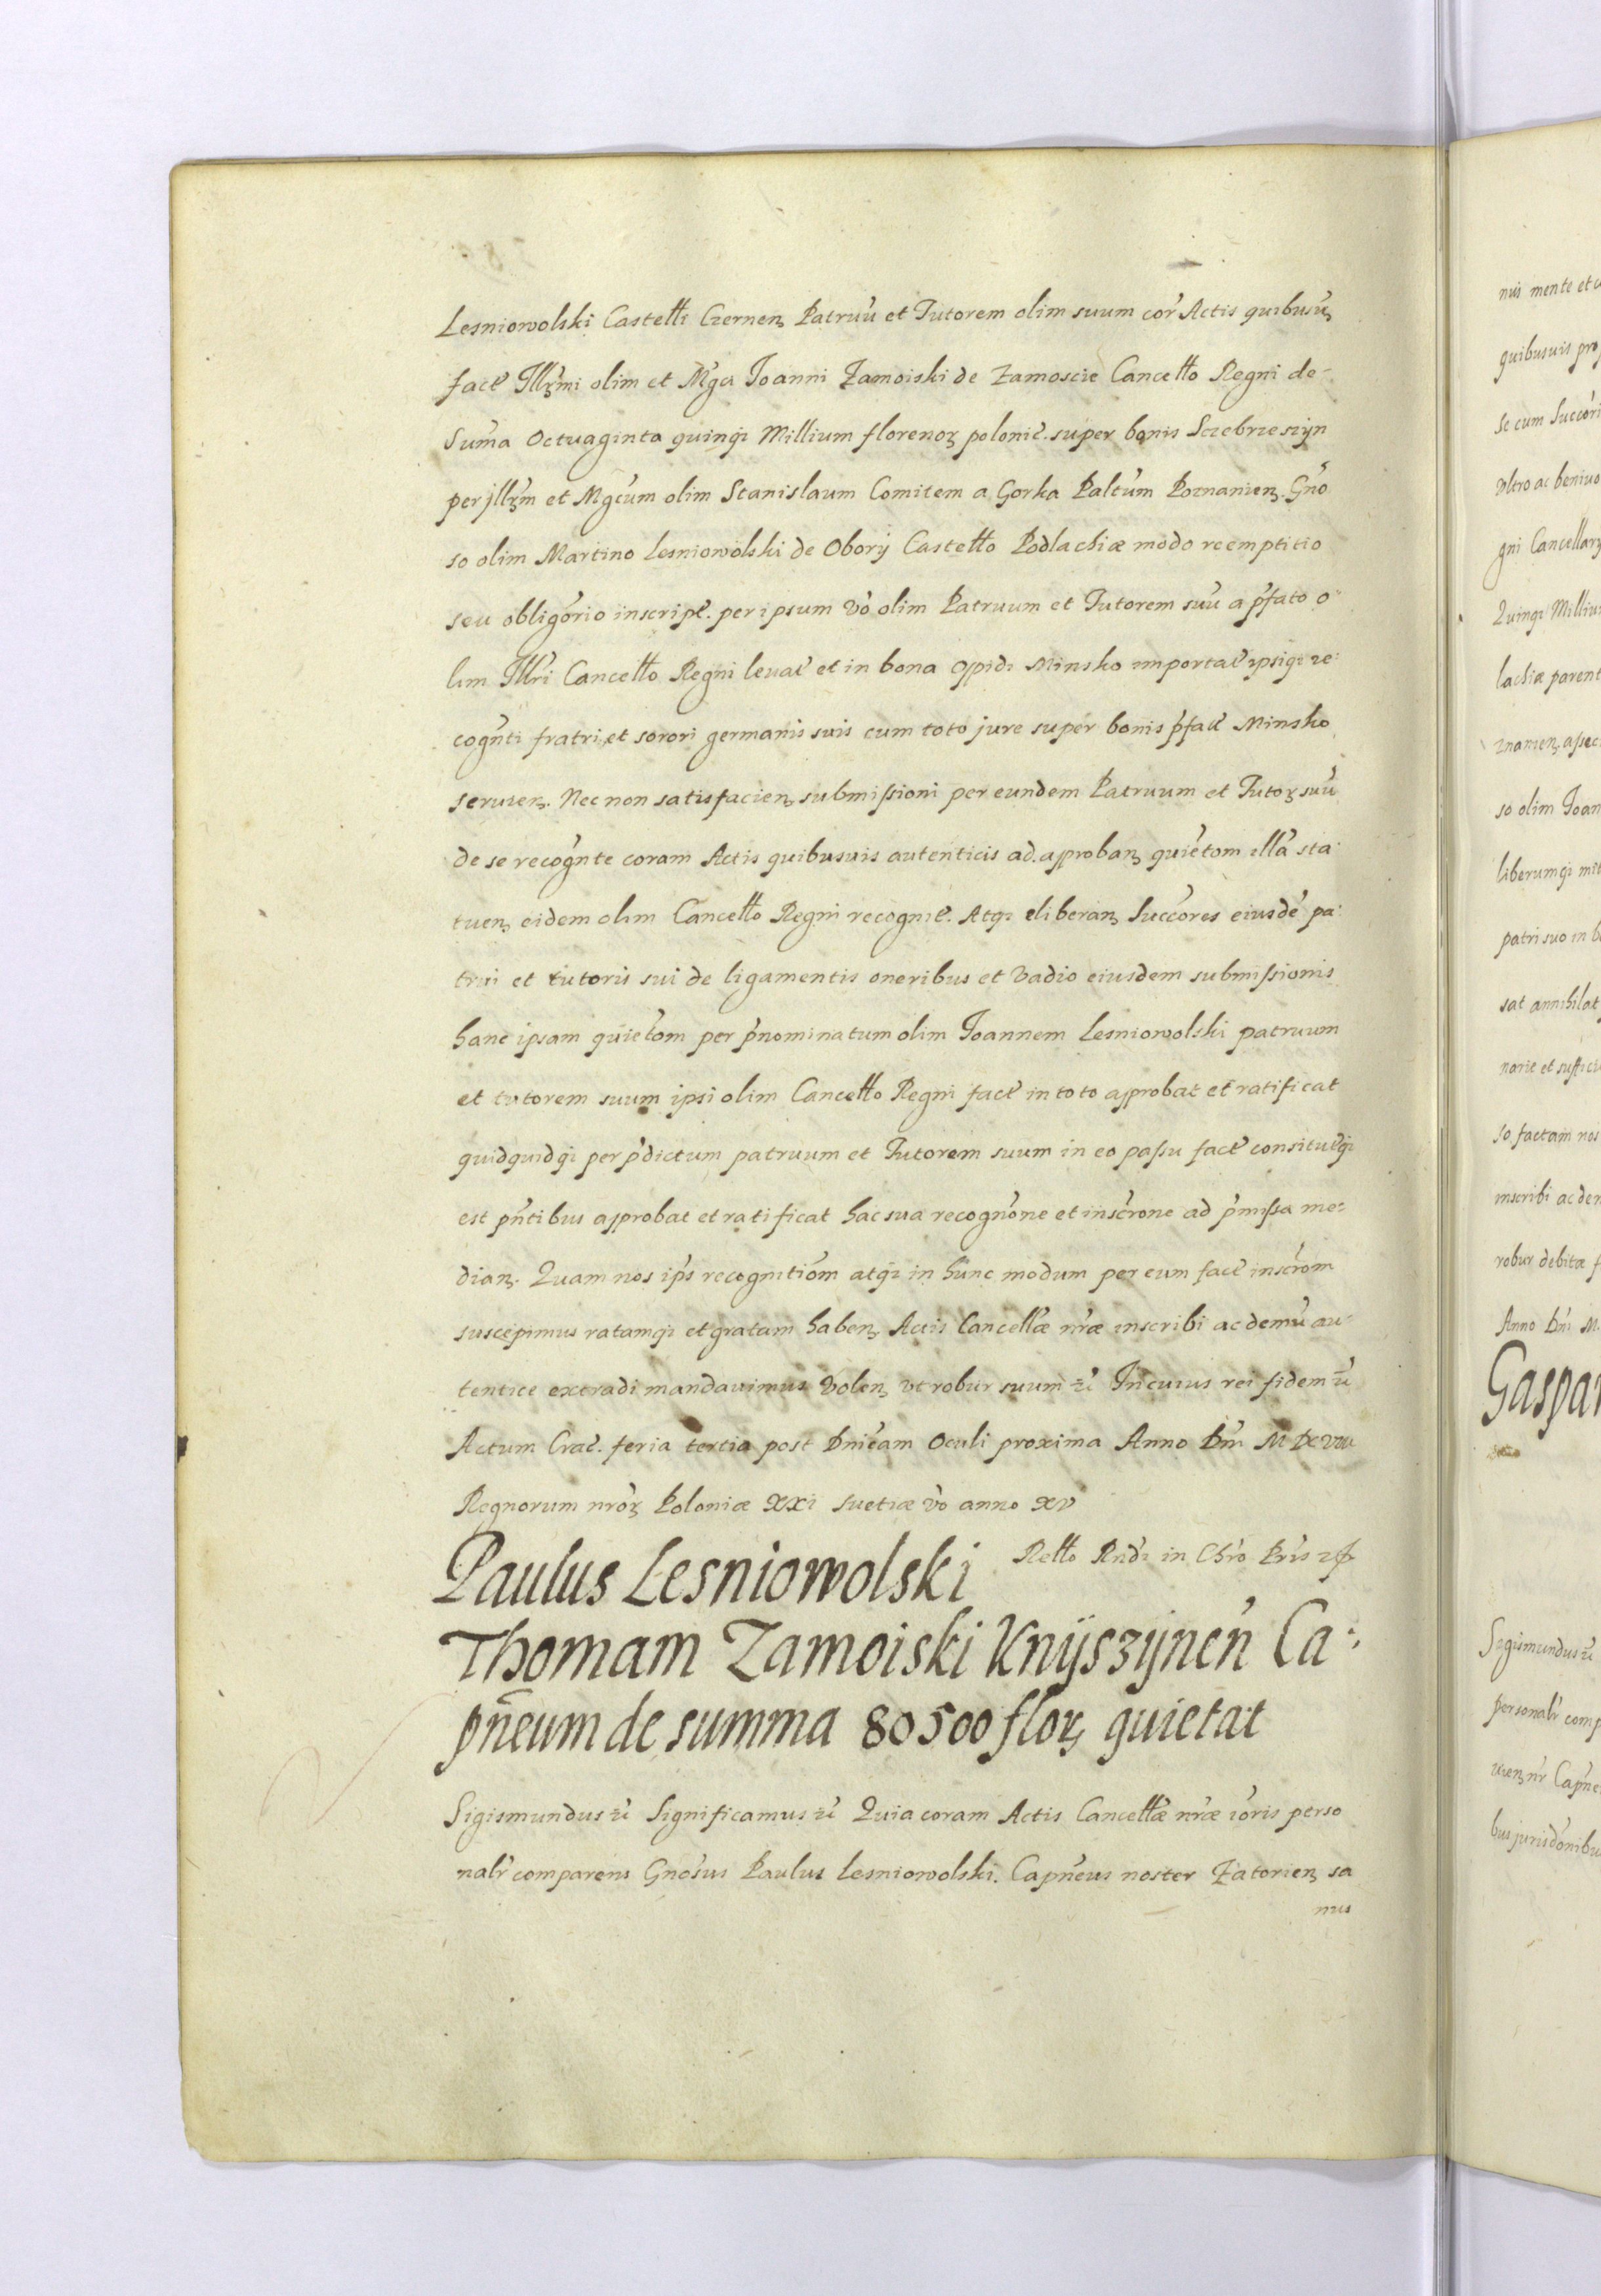 Lesniowolski Castelli Czernen. Patruu et Tutorem olim suum cor Actis quibusu.
fact Illmi olim et Mgci Joanni Zamoiski de Zamoscie Cancello Regni de-
Suma Octuaginta quinqz Millium florenoz polonic. super bonis Sczebrzeszÿn
per jllzm et Mgcum olim Stanislaum Comitem a Gorka Paltum Poznanien. Gno
so olim Martino Lesniowolski de Oborÿ Castello Podlachiæ modo reemptitio
seu obligorio inscript. per ipsum vo olim Patruum et Tutorem suu a pfato o
lim Illri Cancello Regni leuat et in bona oppidi Minsko importat ipsiqz re:
cognti fratri et sorori germanis suis cum toto jure super bonis pfatt Minsko
seruien. Nec non satisfacien submissioni per eundem Patruum et Tutoz suu
de se recognte coram Actis quibusuis autenticis ad approban quietom illa sta
tuen eidem olim Cancello Regni recognit. Atqz eliberan Succores eiusde pa:
trui et tutoris sui de ligamentis oneribus et vadio eiusdem submissionis
hanc ipsam quietom per pnominatum olim Joannem Lesniowolski patruum
et tutorem suum ipsi olim Cancello Regni fact in toto approbat et ratificat
quidquidqz per pdictum patruum et Tutorem suum in eo passu fact constitutqz
est pntibus approbat et ratificat hac sua recognone et inscrone ad pmissa me-
dian. Quam nos ips recognitiom atqz in hunc modum per eum fact inscrom
suscepimus ratamqz et gratam haben Actis Cancellæ nræ inscribi ac demu au-
tentice extradi mandauimus volen vt robur suum zc In cuius rei fidem zc
Actum Crac. feria tertia post Dnicam Oculi proxima Anno Dni M DC VIII
Regnorum nroz Poloniæ XXI Suetiæ vo anno XV
Rello Rndi in Chro Pris
Paulus Lesniowolski
Thomam Zamoiski Knÿszÿnen Ca:
pneum de summa 80500 floz quietat
Sigismundus zc Significamus zc Quia coram Actis Cancellæ nræ ioris perso
nalr comparens Gnosus Paulus Lesniowolski. Capneus noster Zatorien sa
nus